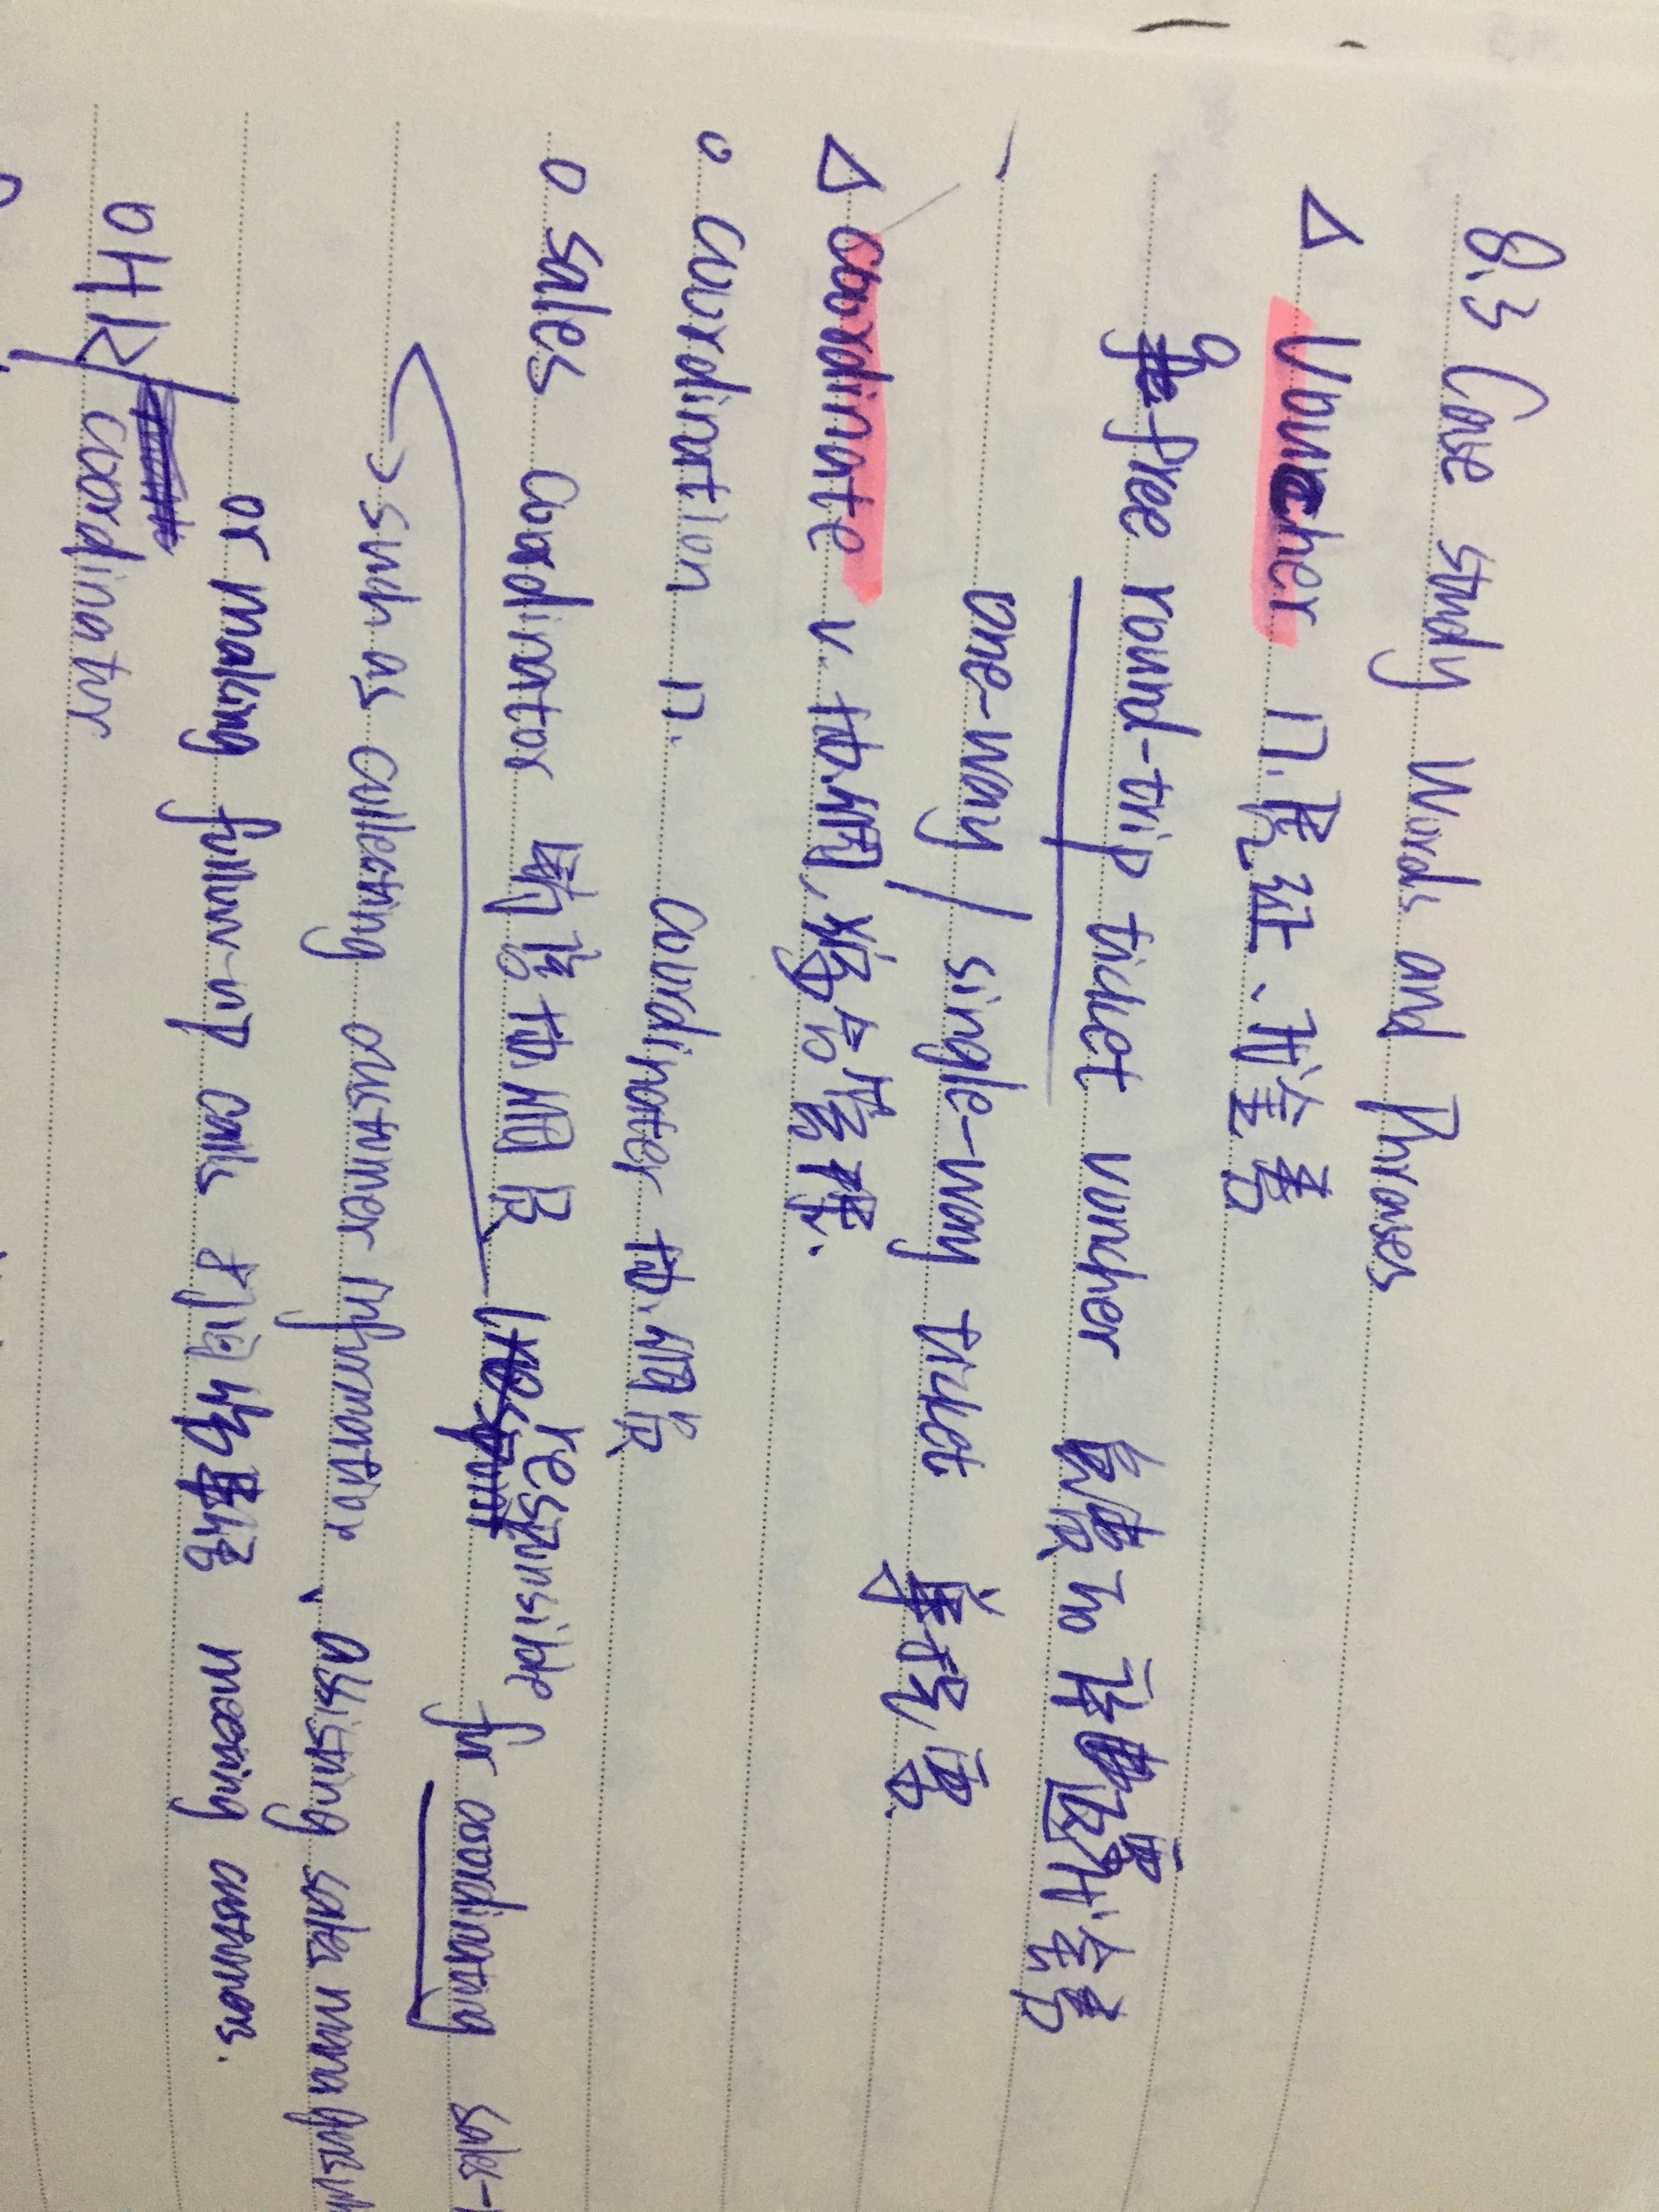 8.3 Case study Words and Phrases
△ Voucher n. 凭证、代金券
free round-trip ticket voucher 免费的往返机票代金券
one-way / single-way ticket 单程票
△ coordinate v. 协调,
o coordination n. coordinator 协调员
o sales coordinator 销售协调员 responsible for coordinating sales-
such as collecting customer information, assisting sales managers
or making follow-up calls 打回访电话 meeting customers.
o HR coordinator